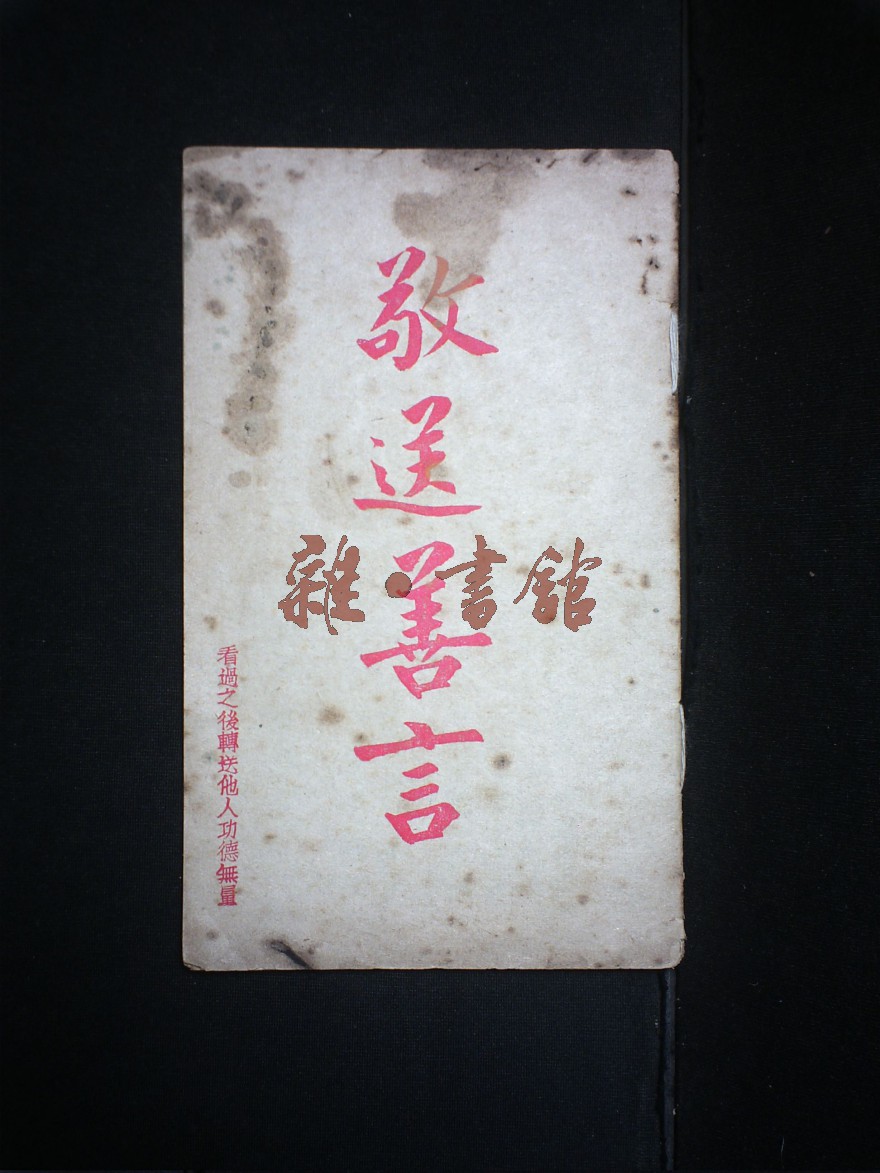 敬送善言
看過之後轉送他人功德無量
雜·書館